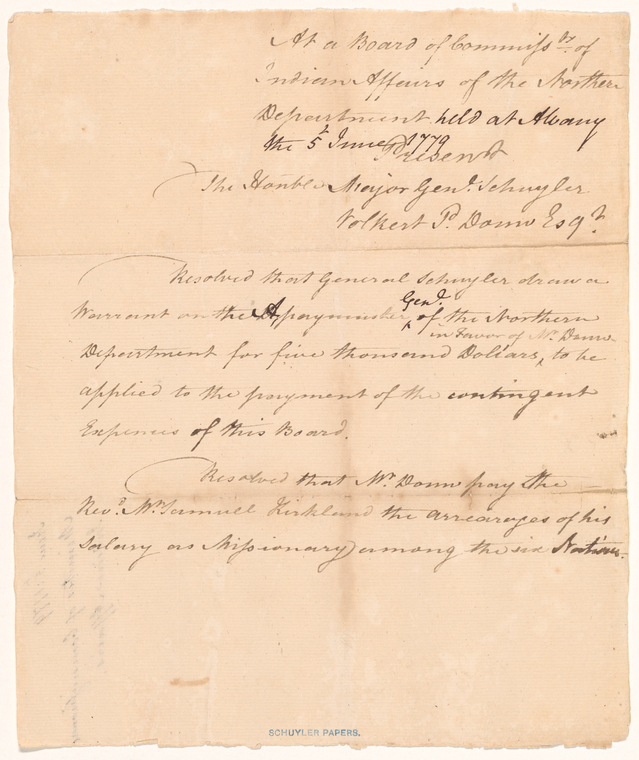 At a Board of Commissrs. of
Indian Affairs of the Northern
Department held at Albany
the 5th June 1779
Present
The Honble. Major Genl. Schuyler
Volkert P. Douw Esqr.
Resolved that General Schuyler draw a
Warrant on the Dy paymaster Genl. of the Northern
in Favor of Mr. Douw
Department for five thousand Dollars, to be
applied to the payment of the contingent
Expences of this Board.
Resolved that Mr. Douw pay the
Revd. Mr. Samuel Kirkland the arrearages of his
Salary as Missionary among the six Nations.
SCHUYLER PAPERS.